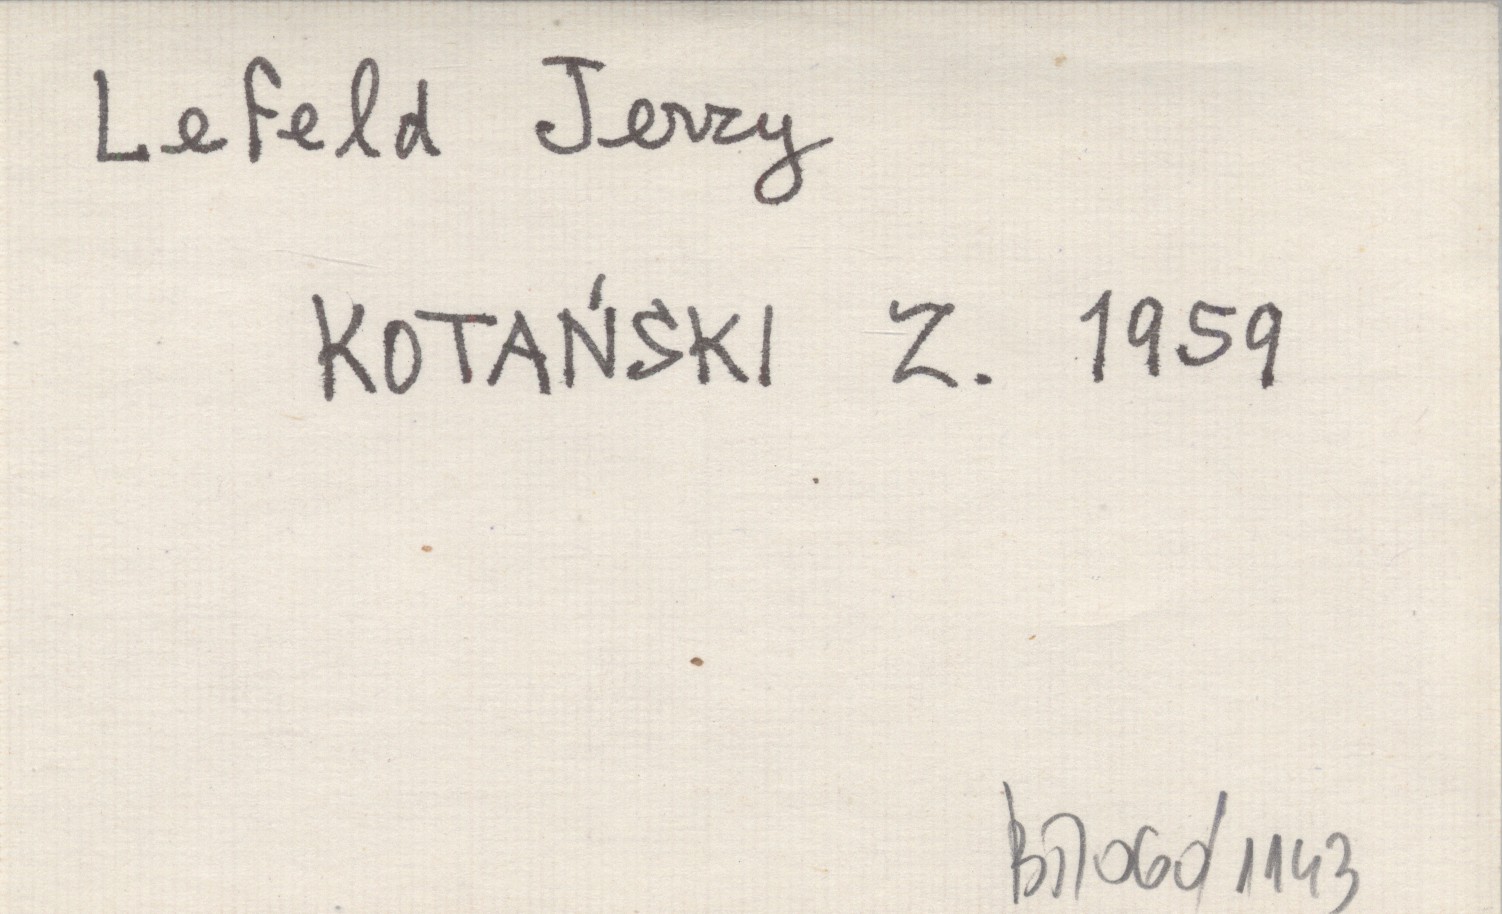 Lefeld Jerzy
KOTAŃSKI Z. 1959
/1143